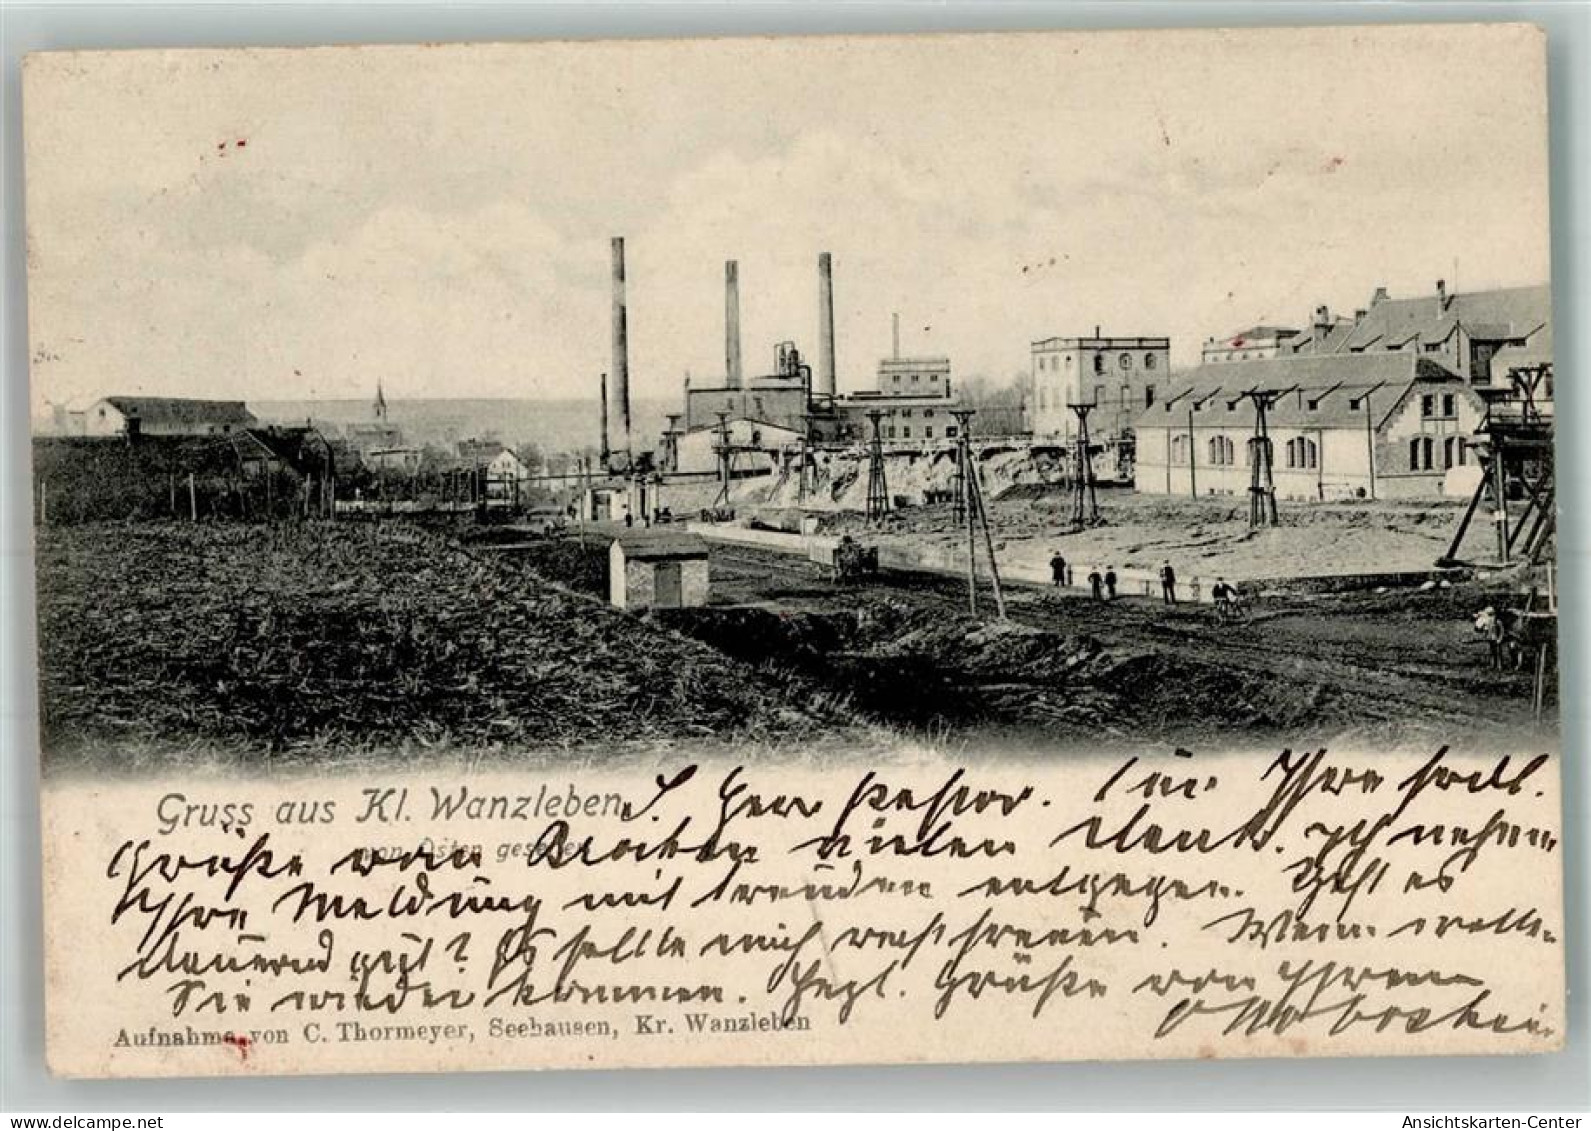 Gruss aus Kl. Wanzleben
von Osten gesehen
L. Herr Pastor. Für Ihre frdl.
Grüße vom Brocken vielen Dank. Ich nehme
Ihre Meldung mit Freuden entgegen. Geht es
dauernd gut? Es sollte mich recht freuen. Wann wollen
Sie wieder kommen. Herzl. Grüße von Ihrem
Otto
Aufnahme von C. Thormeyer, Seehausen, Kr. Wanzleben
Ansichtskarten-Center
www.delcampe.net